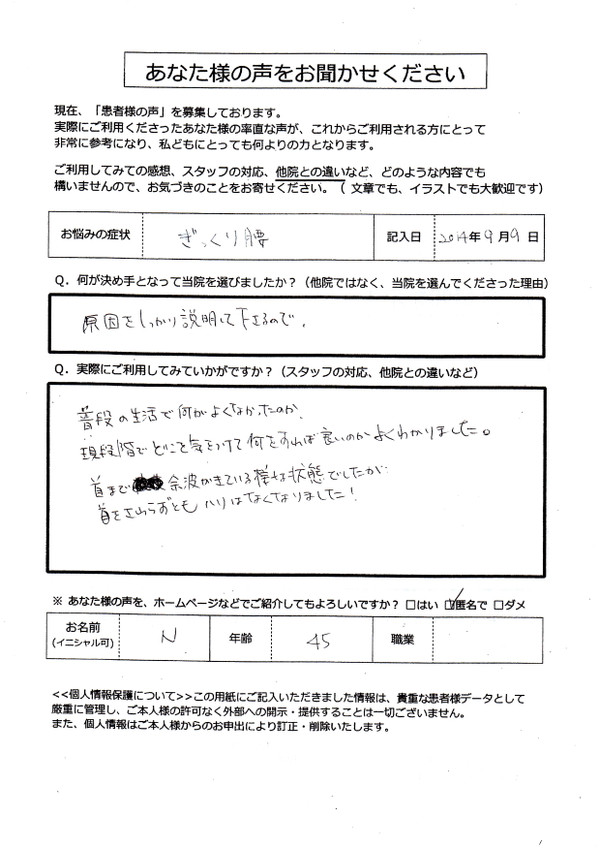 あなた様の声をお聞かせください
現在、「患者様の声」を募集しております。
実際にご利用くださったあなた様の率直な声が、これからご利用される方にとって
非常に参考になり、私どもにとっても何よりの力となります。
ご利用してみての感想、スタッフの対応、他院との違いなど、どのような内容でも
構いませんので、お気づきのことをお寄せください。（ 文章でも、イラストでも大歓迎です）
お悩みの症状 ぎっくり腰 記入日 2014年9月9日
Q．何が決め手となって当院を選びましたか？（他院ではなく、当院を選んでくださった理由）
原因をしっかり説明して下さるので．
Q．実際にご利用してみていかがですか？（スタッフの対応、他院との違いなど）
普段の生活で何がよくなかったのか、
現段階でどこを気をつけて何をすれば良いのかよくわかりました。
首まで余波がきている様な状態でしたが
首をさわらずともハリはなくなりました！
※ あなた様の声を、ホームページなどでご紹介してもよろしいですか？ □はい ☑匿名で □ダメ
お名前 N 年齢 45 職業
(イニシャル可)
<<個人情報保護について>>この用紙にご記入いただきました情報は、貴重な患者様データとして
厳重に管理し、ご本人様の許可なく外部への開示・提供することは一切ございません。
また、個人情報はご本人様からのお申出により訂正・削除いたします。